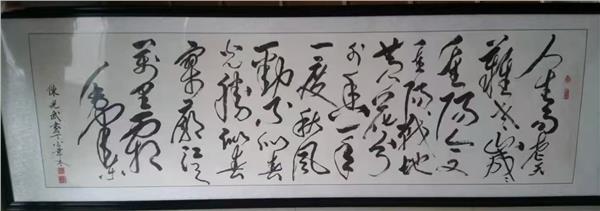 人生易老天
難老歲歲
重陽今又
重陽戰地
黄花分
外香一年
一度秋風
勁不似春
光勝似春
寥廓江天
萬里霜